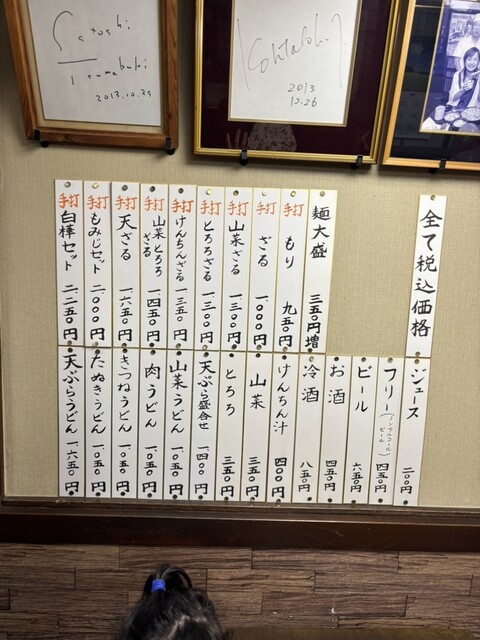 Satoshi
Tsumabuki
2013.10.29
2013
12.26
全て税込価格
麺大盛 三五〇円増
手打 もり 九五〇円
手打 ざる 一、〇〇〇円
手打 山菜ざる 一、三〇〇円
手打 とろろざる 一、三〇〇円
手打 けんちんざる 一、三五〇円
手打 山菜とろろざる 一、四五〇円
手打 天ざる 一、六五〇円
手打 もみじセット 二、〇〇〇円
手打 白樺セット 二、二五〇円
ジュース 二〇〇円
フリー(ノンアルコールビール) 四五〇円
ビール 六五〇円
お酒 四五〇円
冷酒 八五〇円
けんちん汁 四〇〇円
山菜 三五〇円
とろろ 三五〇円
天ぷら盛合せ 一、四〇〇円
山菜うどん 一、〇五〇円
肉うどん 一、〇五〇円
きつねうどん 一、〇五〇円
たぬきうどん 一、〇五〇円
天ぷらうどん 一、六五〇円